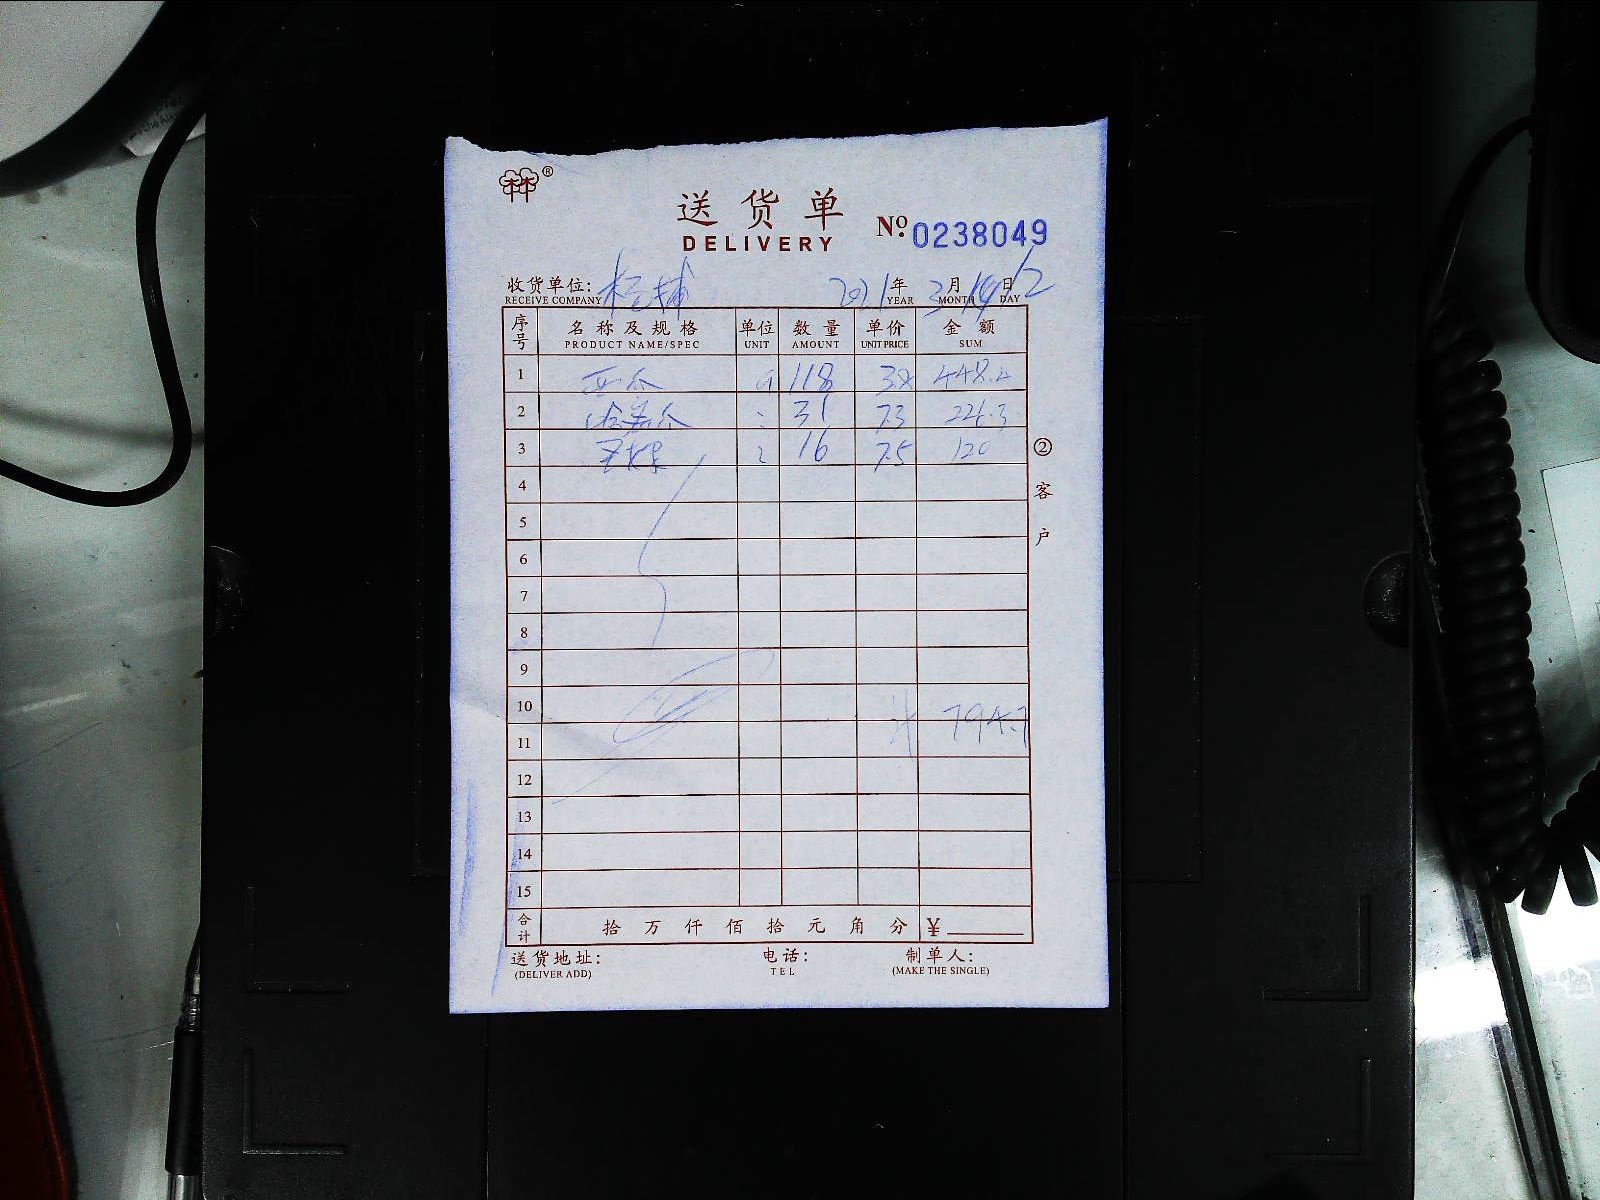 林®
送货单
DELIVERY
Nº 0238049
收货单位: 2021年3月14日 12
RECEIVE COMPANY YEAR MONTH DAY
序号 名称及规格 单位 数量 单价 金额
PRODUCT NAME/SPEC UNIT AMOUNT UNIT PRICE SUM
1 西瓜 118 3.8 448.4
2 哈美瓜 31 7.3 226.3
3 16 7.5 120
4
5
6
7
8
9
10 计 794.7
11
12
13
14
15
合计 拾 万 仟 佰 拾 元 角 分 ¥
送货地址: 电话: 制单人:
(DELIVER ADD) TEL (MAKE THE SINGLE)
②客户